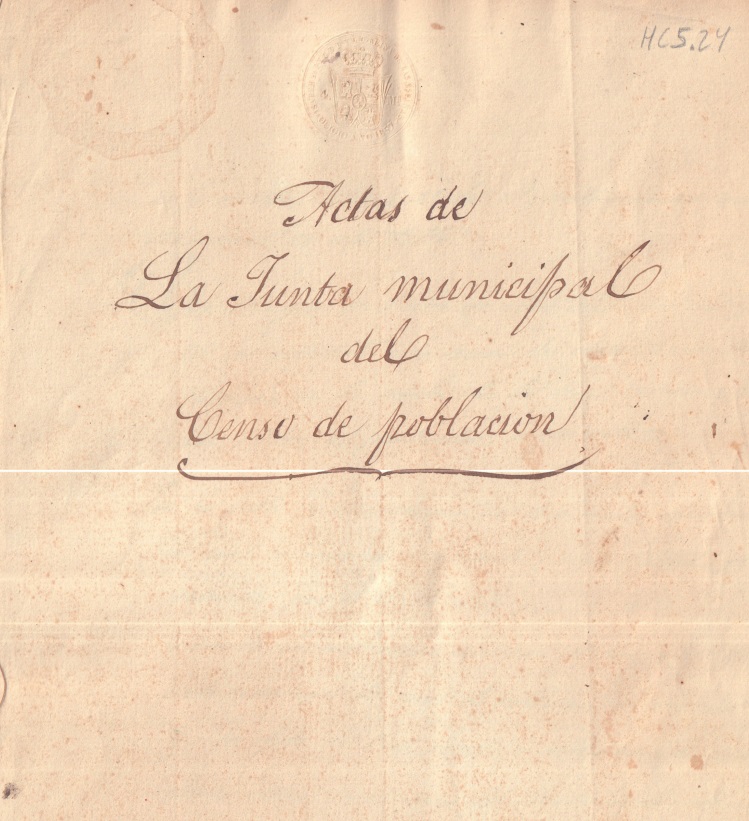 HC5.24
Actas de
La Junta municipal
del
Censo de poblacion